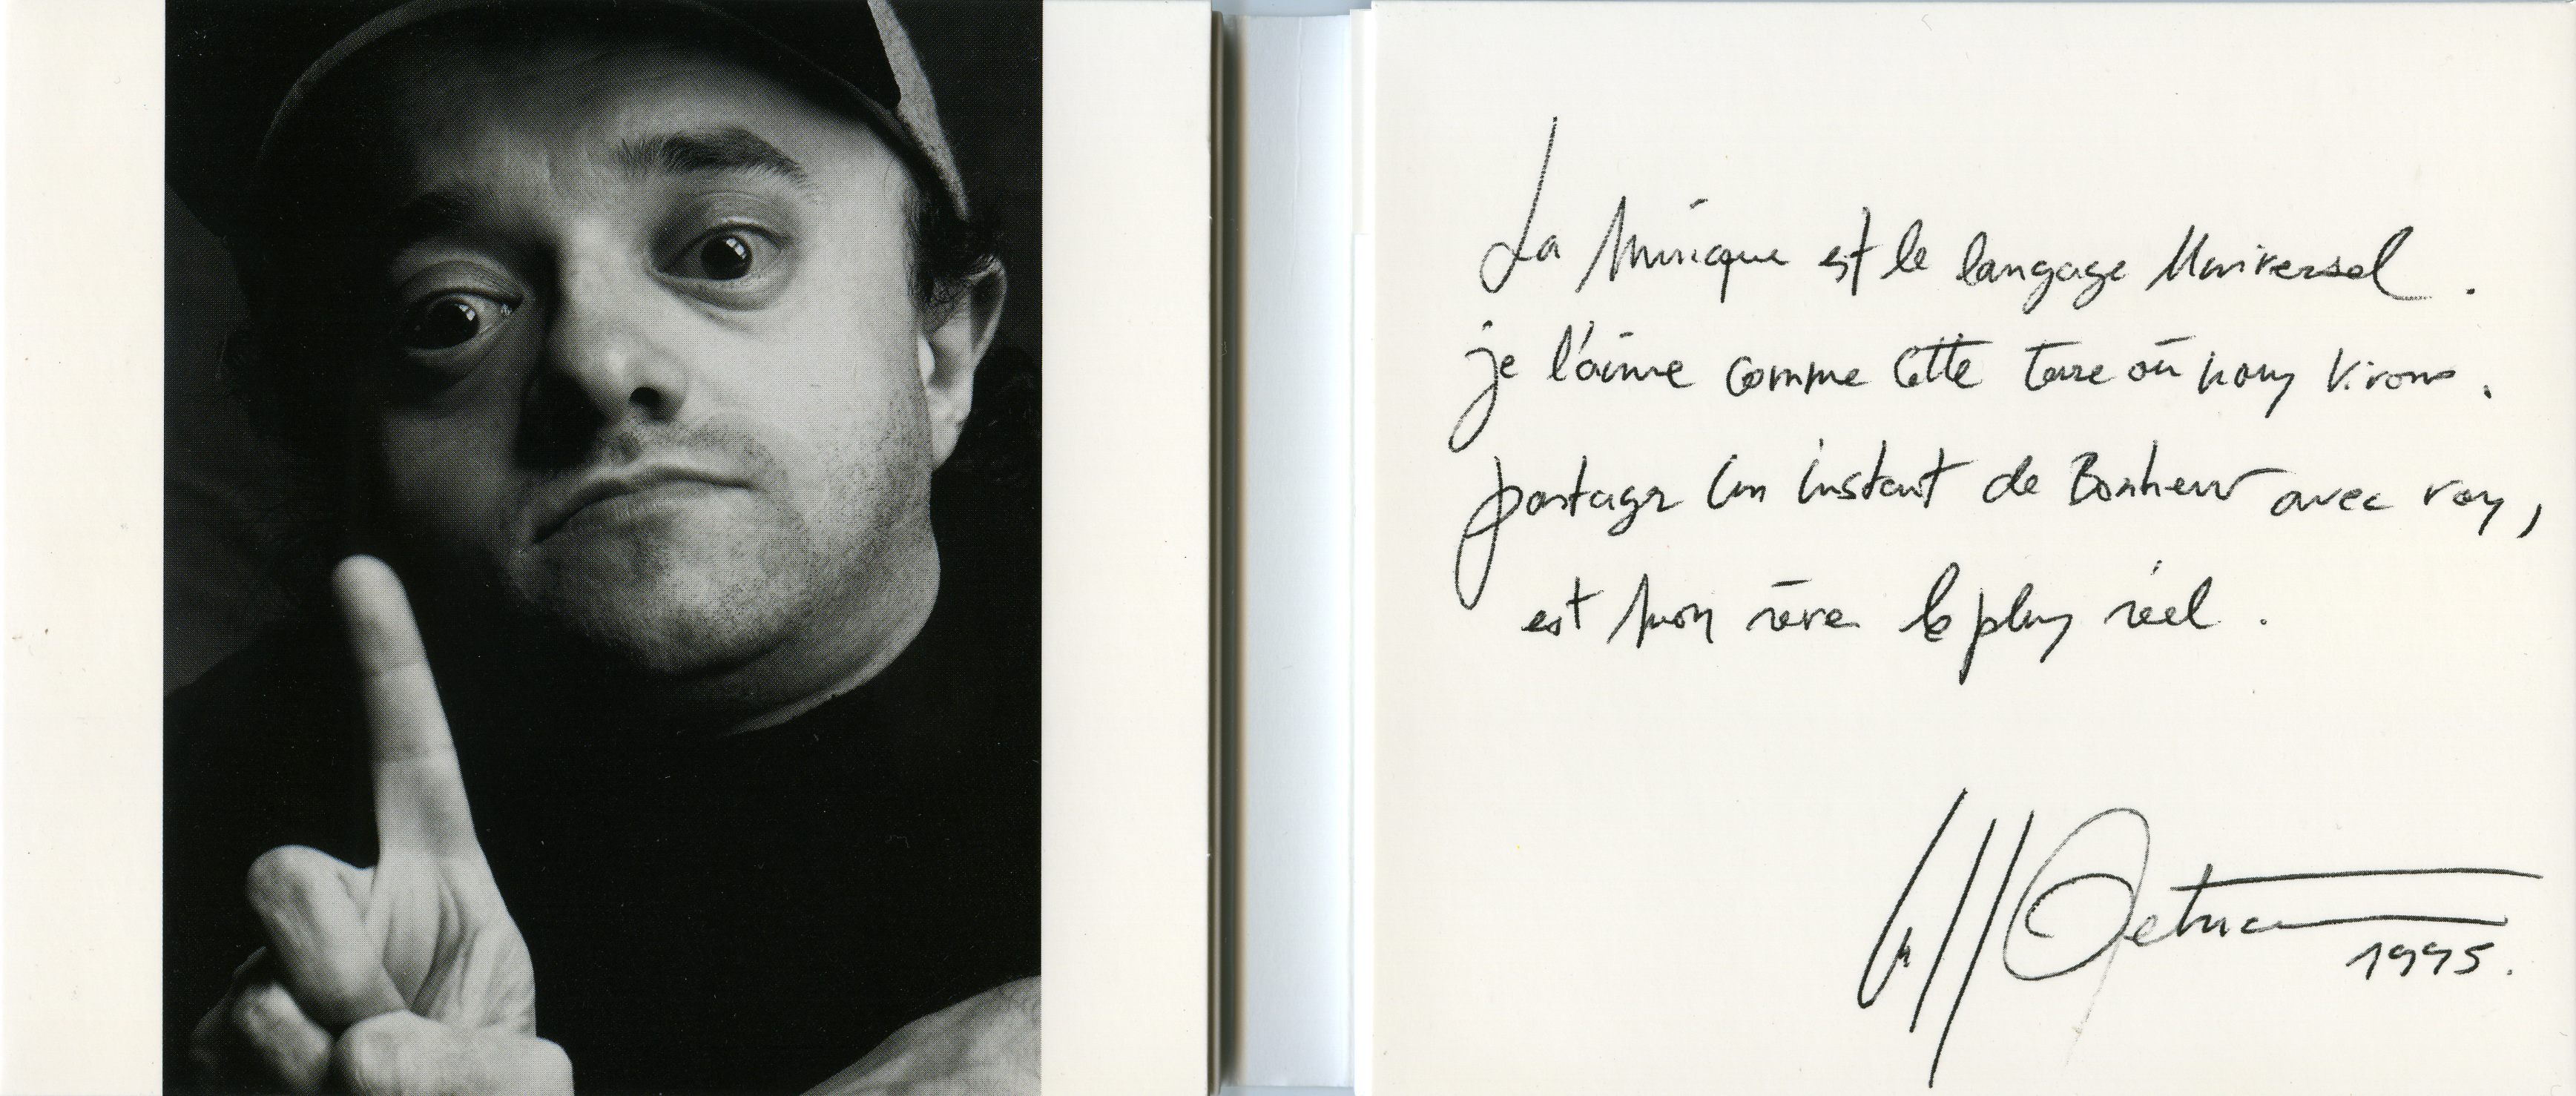 La Musique est le langage Universel.
je l'aime comme cette terre où nous vivons.
partager un instant de Bonheur avec vous,
est mon rêve le plus réel.
1995.